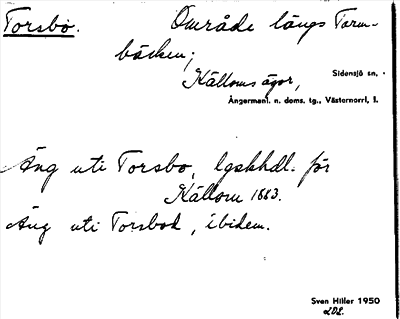 Torsbo. Område längs Torm-
bäcken;
Källoms ägor, Sidensjö sn,
Ångermanl. n. doms. tg., Västernorrl. l.
Äng uti Torsbo, lgskhdl. för
Källom 1663.
Äng uti Torsbod, ibidem.
Sven Hiller 1950